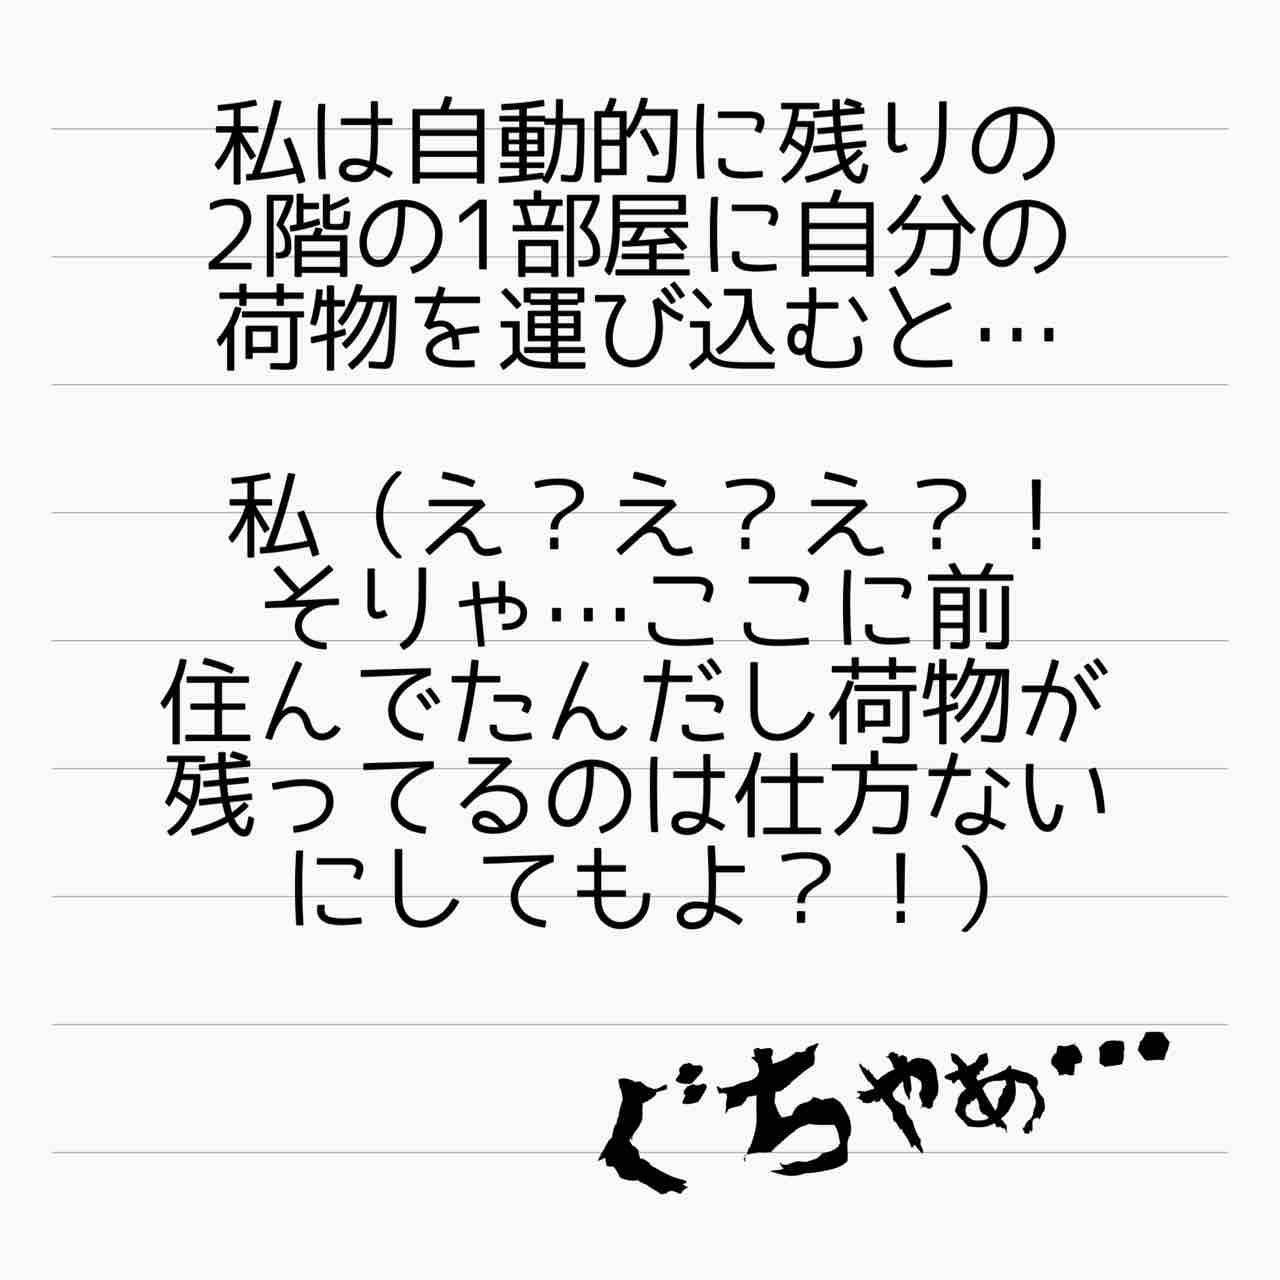 私は自動的に残りの
2階の1部屋に自分の
荷物を運び込むと…
私（え？え？え？！
そりゃ…ここに前
住んでたんだし荷物が
残ってるのは仕方ない
にしてもよ？！）
ぐちゃぁ…